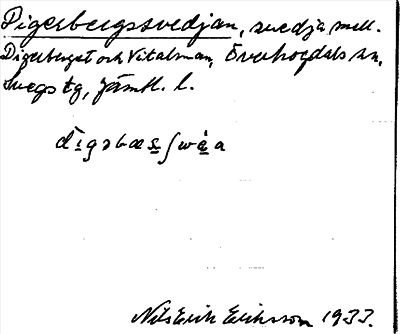 Digerbergssvedjan, svedja mell.
Digerberget och Vitalsman, Överhogdals sn,
Svegs tg, Jämtl. l.
Nils Erik Eriksson 1933.